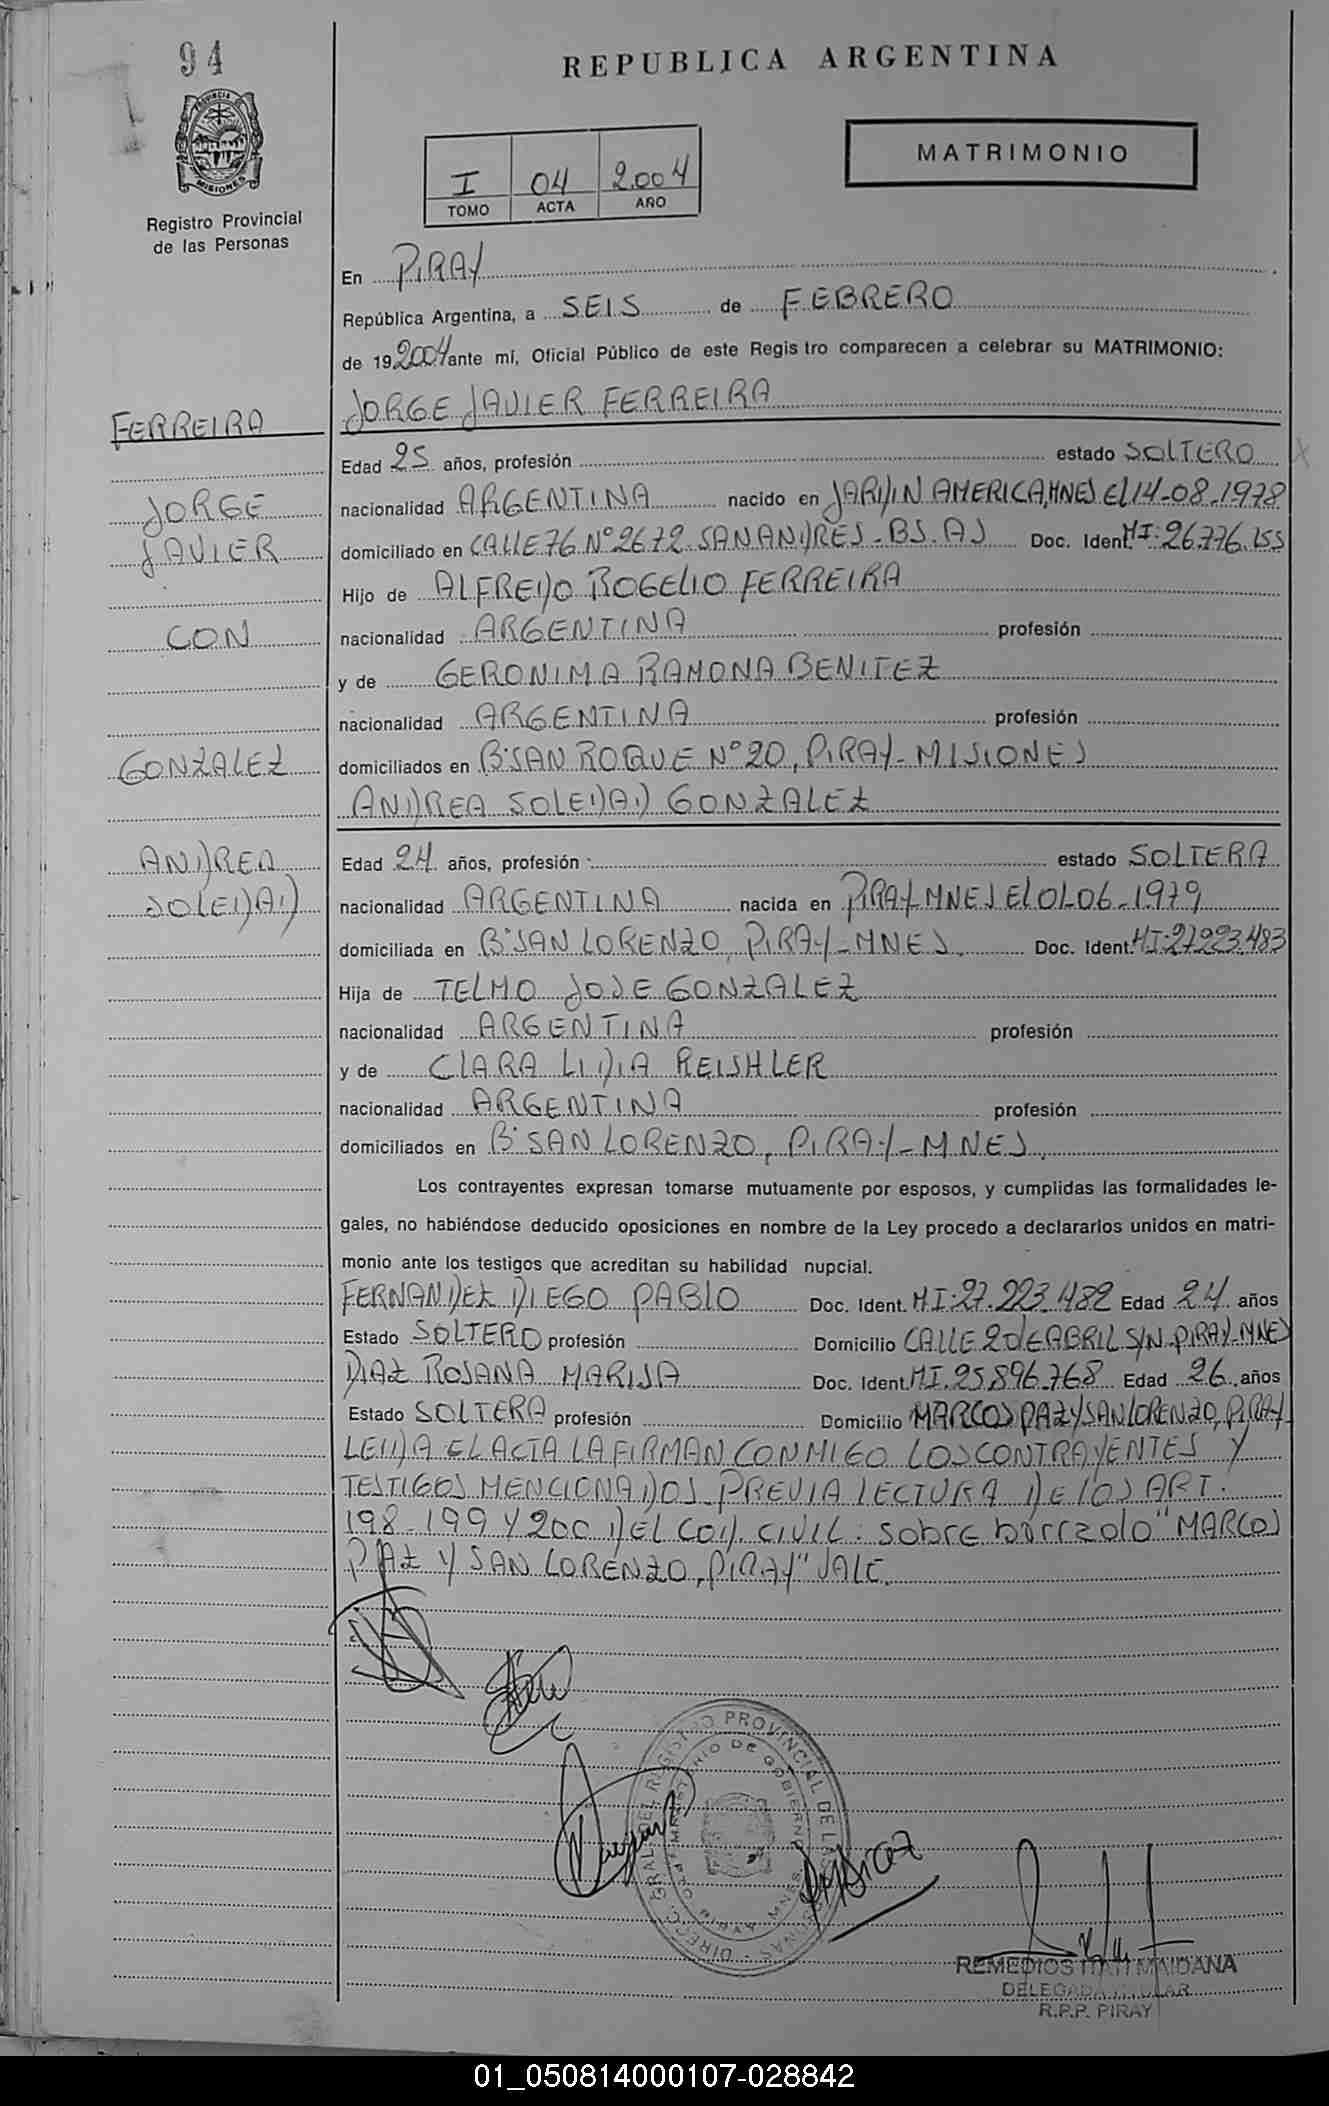 94
PROVINCIA DE
MISIONES
Registro Provincial
de las Personas
REPUBLICA ARGENTINA
I 04 2.004
TOMO ACTA AÑO
MATRIMONIO
En PIRAY
República Argentina, a SEIS de FEBRERO
de 192004 ante mí, Oficial Público de este Regis tro comparecen a celebrar su MATRIMONIO:
FERREIRA
JORGE JAVIER FERREIRA
Edad 25 años, profesión estado SOLTERO
JORGE
nacionalidad ARGENTINA nacido en JARDIN AMERICA, MNES El 14-08-1978
JAVIER
domiciliado en CALLE 76 Nº 2672 SAN ANDRES - BS. AS Doc. Ident. MI: 26.776.155
Hijo de ALFREDO ROGELIO FERREIRA
CON
nacionalidad ARGENTINA profesión
y de GERONIMA RAMONA BENITEZ
nacionalidad ARGENTINA profesión
GONZALEZ
domiciliados en Bº SAN ROQUE Nº 20, PIRAY - MISIONES
ANDREA SOLEDAD GONZALEZ
ANDREA
Edad 24 años, profesión estado SOLTERA
SOLEDAD
nacionalidad ARGENTINA nacida en PIRAY MNES El 01-06-1979
domiciliada en Bº SAN LORENZO, PIRAY - MNES. Doc. Ident. MI: 27.223.483
Hija de TELMO JOSE GONZALEZ
nacionalidad ARGENTINA profesión
y de CLARA LIDIA REISHLER
nacionalidad ARGENTINA profesión
domiciliados en Bº SAN LORENZO, PIRAY - MNES.
Los contrayentes expresan tomarse mutuamente por esposos, y cumplidas las formalidades le-
gales, no habiéndose deducido oposiciones en nombre de la Ley procedo a declararlos unidos en matri-
monio ante los testigos que acreditan su habilidad nupcial.
FERNANDEZ DIEGO PABLO Doc. Ident. MI: 27.223.482 Edad 24 años
Estado SOLTERO profesión Domicilio CALLE 2 DE ABRIL S/N. PIRAY - MNES
DIAZ ROSANA MARISA Doc. Ident. MI. 25.896.768 Edad 26 años
Estado SOLTERA profesión Domicilio MARCOS PAZ Y SAN LORENZO, PIRAY
LEIDA EL ACTA LA FIRMAN CONMIGO LOS CONTRAYENTES Y
TESTIGOS MENCIONADOS PREVIA LECTURA DE LOS ART.
198 - 199 Y 200 DEL COD. CIVIL: Sobre borrado "MARCOS
PAZ Y SAN LORENZO, PIRAY" VALE.
DIRECC. GRAL. DEL REGISTRO PROVINCIAL DE LAS PERSONAS
MINISTERIO DE GOBIERNO
PIRAY MNES
REMEDIOS ITATI MAIDANA
DELEGADA TITULAR
R.P.P. PIRAY
01_050814000107-028842